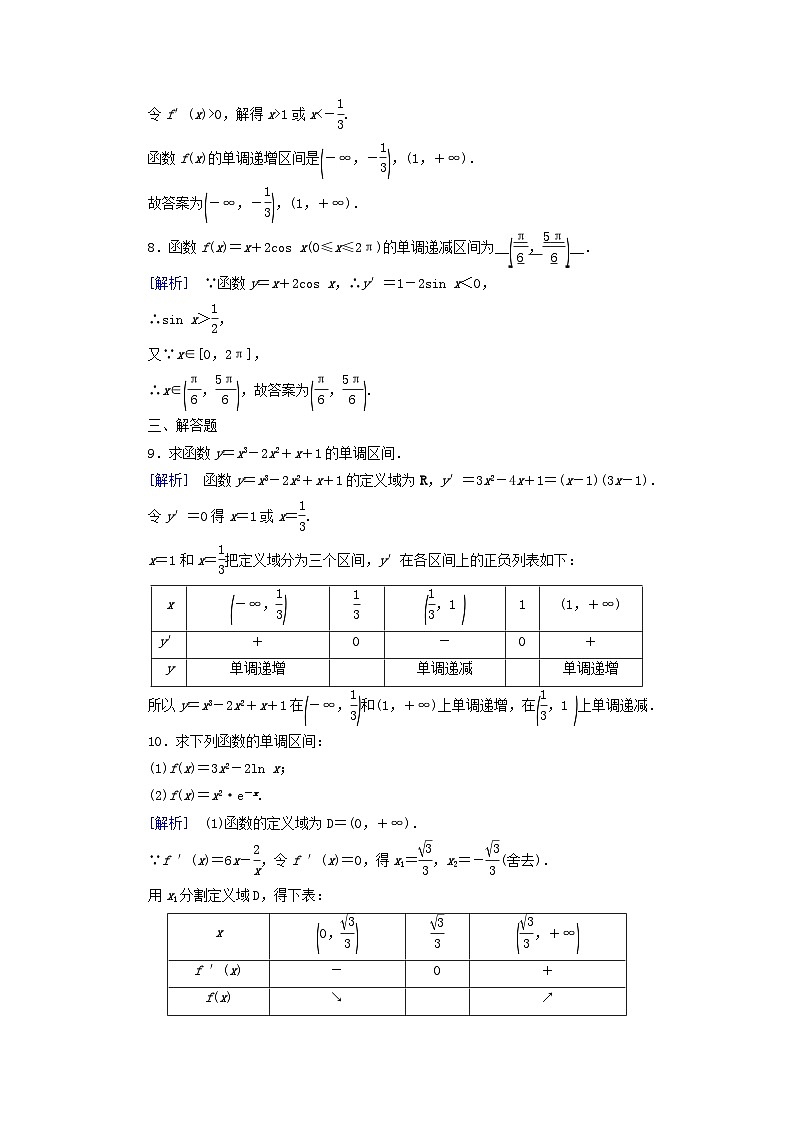 令 f′(x)>0,解得 x>1 或 x<-1/3.
函数 f(x)的单调递增区间是(-∞,-1/3),(1,+∞).
故答案为(-∞,-1/3),(1,+∞).
8.函数 f(x)=x+2cos x(0≤x≤2π)的单调递减区间为__(π/6,5π/6)__.
[解析] ∵函数 y=x+2cos x,∴y′=1-2sin x<0,
∴sin x>1/2,
又∵x∈[0,2π],
∴x∈(π/6,5π/6),故答案为(π/6,5π/6).
三、解答题
9.求函数 y=x³-2x²+x+1 的单调区间.
[解析] 函数 y=x³-2x²+x+1 的定义域为 R,y′=3x²-4x+1=(x-1)(3x-1).
令 y′=0 得 x=1 或 x=1/3.
x=1 和 x=1/3把定义域分为三个区间,y′在各区间上的正负列表如下:
x (-∞,1/3) 1/3 (1/3,1) 1 (1,+∞)
y′ + 0 - 0 +
y 单调递增 单调递减 单调递增
所以 y=x³-2x²+x+1 在(-∞,1/3)和(1,+∞)上单调递增,在(1/3,1)上单调递减.
10.求下列函数的单调区间:
(1)f(x)=3x²-2ln x;
(2)f(x)=x²·e⁻ˣ.
[解析] (1)函数的定义域为 D=(0,+∞).
∵f′(x)=6x-2/x,令 f′(x)=0,得 x₁=√3/3,x₂=-√3/3(舍去).
用 x₁分割定义域 D,得下表:
x (0,√3/3) √3/3 (√3/3,+∞)
f′(x) - 0 +
f(x) ↘ ↗